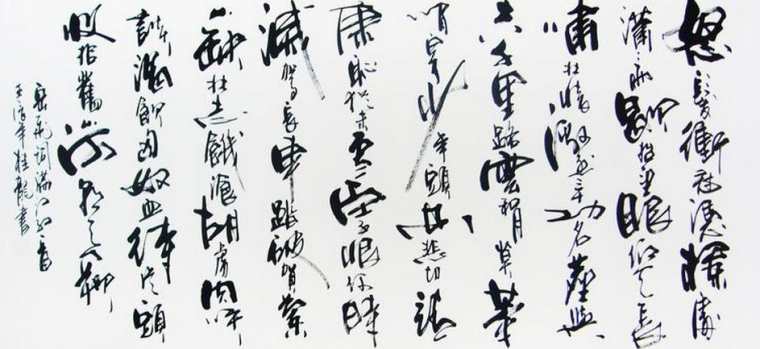 怒髮衝冠憑欄處
瀟瀟雨歇抬望眼仰天長
嘯壯懷激烈三十功名塵與
土八千里路雲和月莫等
閒白了少年頭空悲切靖
康恥猶未雪臣子恨何時
滅駕長車踏破賀蘭
山缺壯志饑飡胡虜肉笑
談渴飲匈奴血待從頭
收拾舊山河朝天闕
岳飛詞滿江紅一首
桂龍書